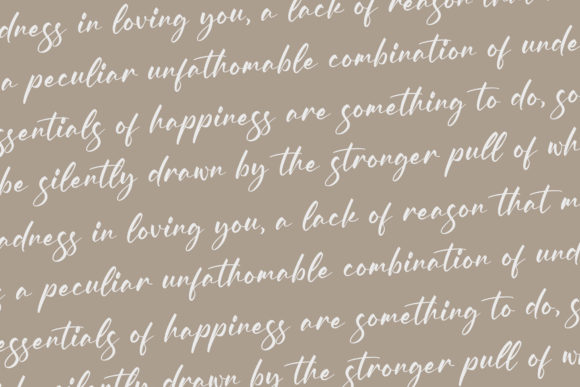 dness in loving you, a lack of reason that m
a peculiar unfathomable combination of unde
ssentials of happiness are something to do, so
be silently drawn by the stronger pull of wh
adness in loving you, a lack of reason that m
s a peculiar unfathomable combination of und
essentials of happiness are something to do, s
be silently drawn by the stronger pull of w